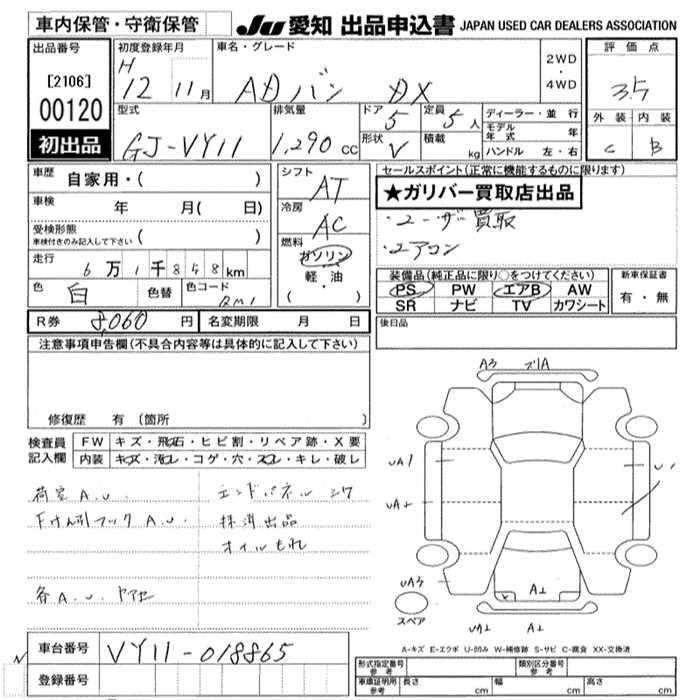 車内保管・守衛保管
JU 愛知 出品申込書 JAPAN USED CAR DEALERS ASSOCIATION
出品番号
[2106]
00120
初出品
初度登録年月
H
12 11月
車名・グレード
ADバン DX
2WD
・
4WD
評価点
3.5
外装 内装
C B
型式
GJ-VY11
排気量
1,290 cc
ドア
5
定員
5人
形状
V
積載
kg
ディーラー・並行
モデル年式 年
ハンドル 左・右
車歴
自家用・( )
車検
年 月( 日)
受検形態
車検付きのみ記入して下さい ( )
走行
6万1千858km
色
白
色替
色コード
シフト
AT
冷房
AC
燃料
ガソリン
軽・油
( ・ )
セールスポイント(正常に機能するものに限ります)
★ガリバー買取店出品
・ユーザー買取
・エアコン
装備品(純正品に限り○をつけてください)
PS PW エアB AW
SR ナビ TV カワシート
新車保証書
有・無
R券 8,060 円
名変期限 月 日
後日品
注意事項申告欄(不具合内容等は具体的に記入して下さい)
修復歴 有 (箇所 )
検査員
記入欄
FW キズ・飛石・ヒビ割・リペア跡・X要
内装 キズ・汚レ・コゲ・穴・スレ・キレ・破レ
荷室 A.U.
エンドパネル シワ
下けん引フック A.U.
抹消出品
オイルもれ
各A.U. ヤアセ
A3 ズリA
UA1
U1
UA2
UA3
A2
スペア
UA2 A2
A-キズ E-エクボ U-凹み W-補修跡 S-サビ C-腐食 XX-交換済
車台番号
VY11-018865
登録番号
形式指定番号
参考
類別区分番号
参考
車庫証明用
参考
長さ cm
幅 cm
高さ cm